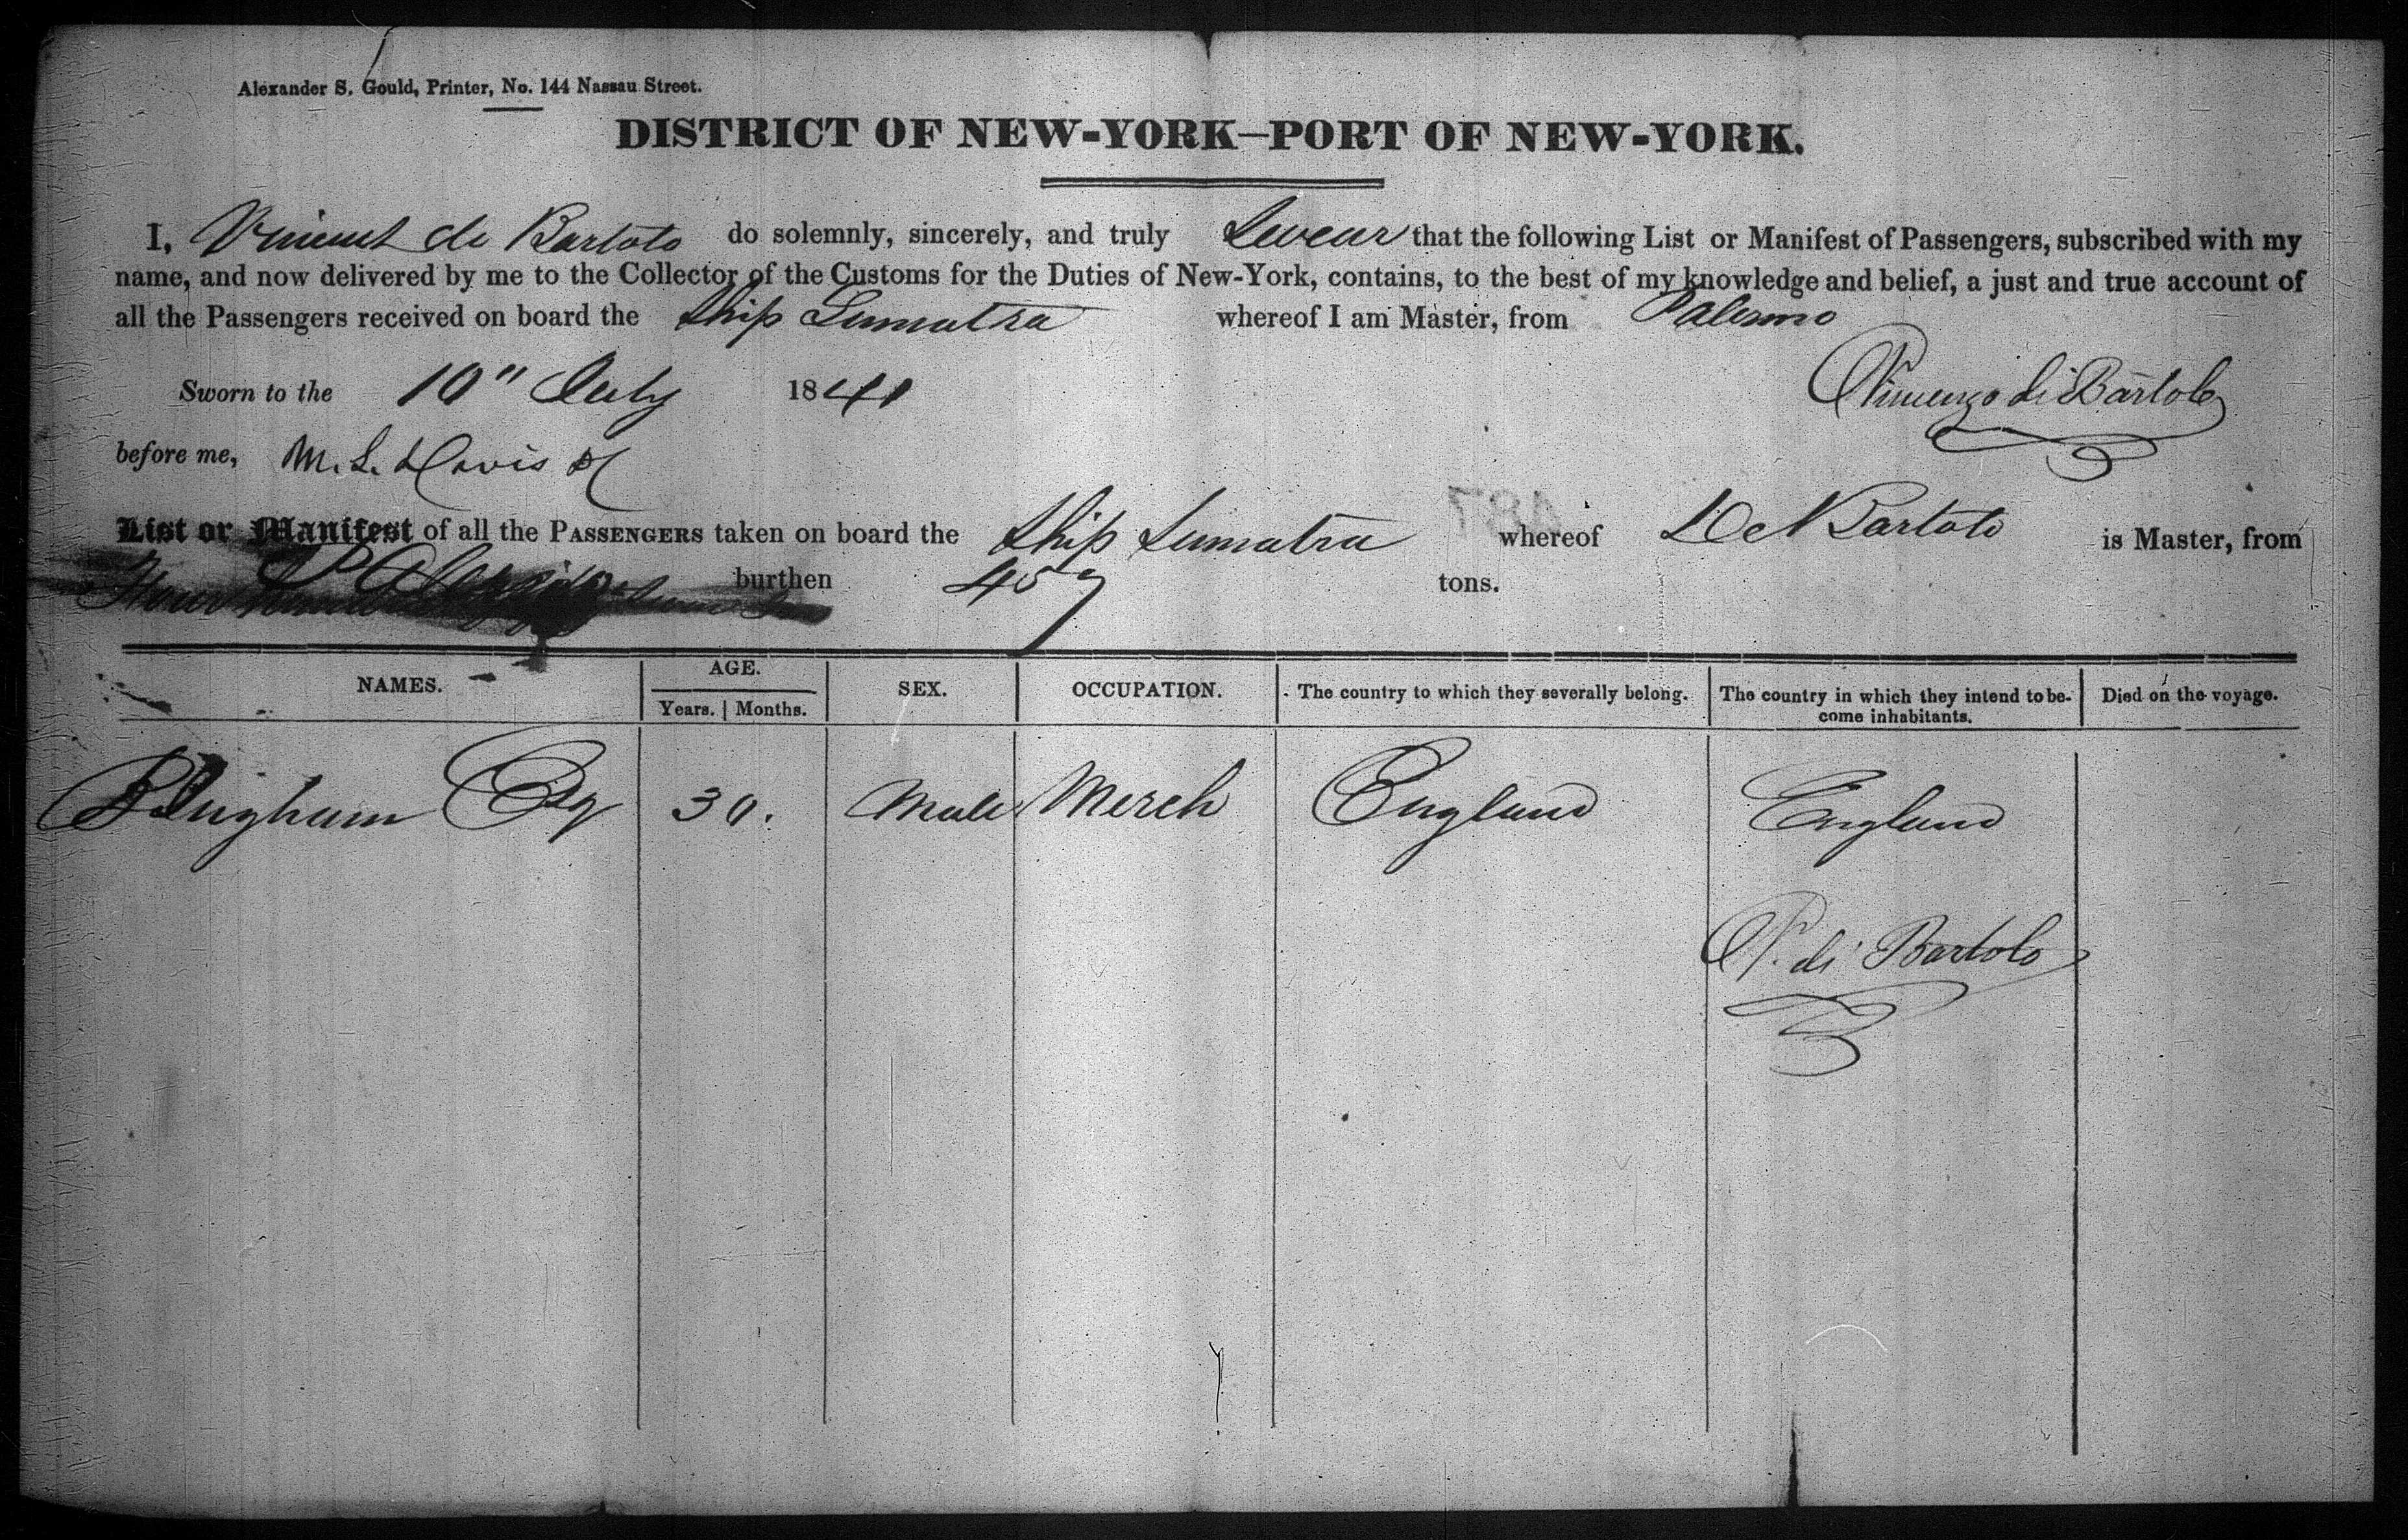 Alexander S. Gould, Printer, No. 144 Nassau Street.
DISTRICT OF NEW-YORK—PORT OF NEW-YORK.
I, Vincent de Bartolo do solemnly, sincerely, and truly Swear that the following List or Manifest of Passengers, subscribed with my
name, and now delivered by me to the Collector of the Customs for the Duties of New-York, contains, to the best of my knowledge and belief, a just and true account of
all the Passengers received on board the Ship Sumatra whereof I am Master, from Palermo
Sworn to the 10" July 1841
Vincenzo di Bartolo
before me, M. L. Davis
List or Manifest of all the PASSENGERS taken on board the Ship Sumatra whereof De Bartolo is Master, from
burthen 457 tons.
NAMES. AGE. Years. Months. SEX. OCCUPATION. The country to which they severally belong. The country in which they intend to become inhabitants. Died on the voyage.
Bingham Esq 30. Male Merch England England
V. di Bartolo
487